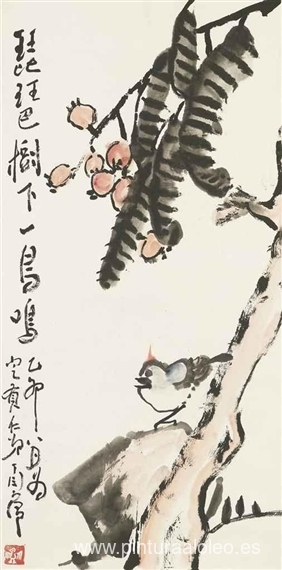 琵琶樹下一鳥鳴
乙卯八月為
仁弟
www.pinturaaloleo.es